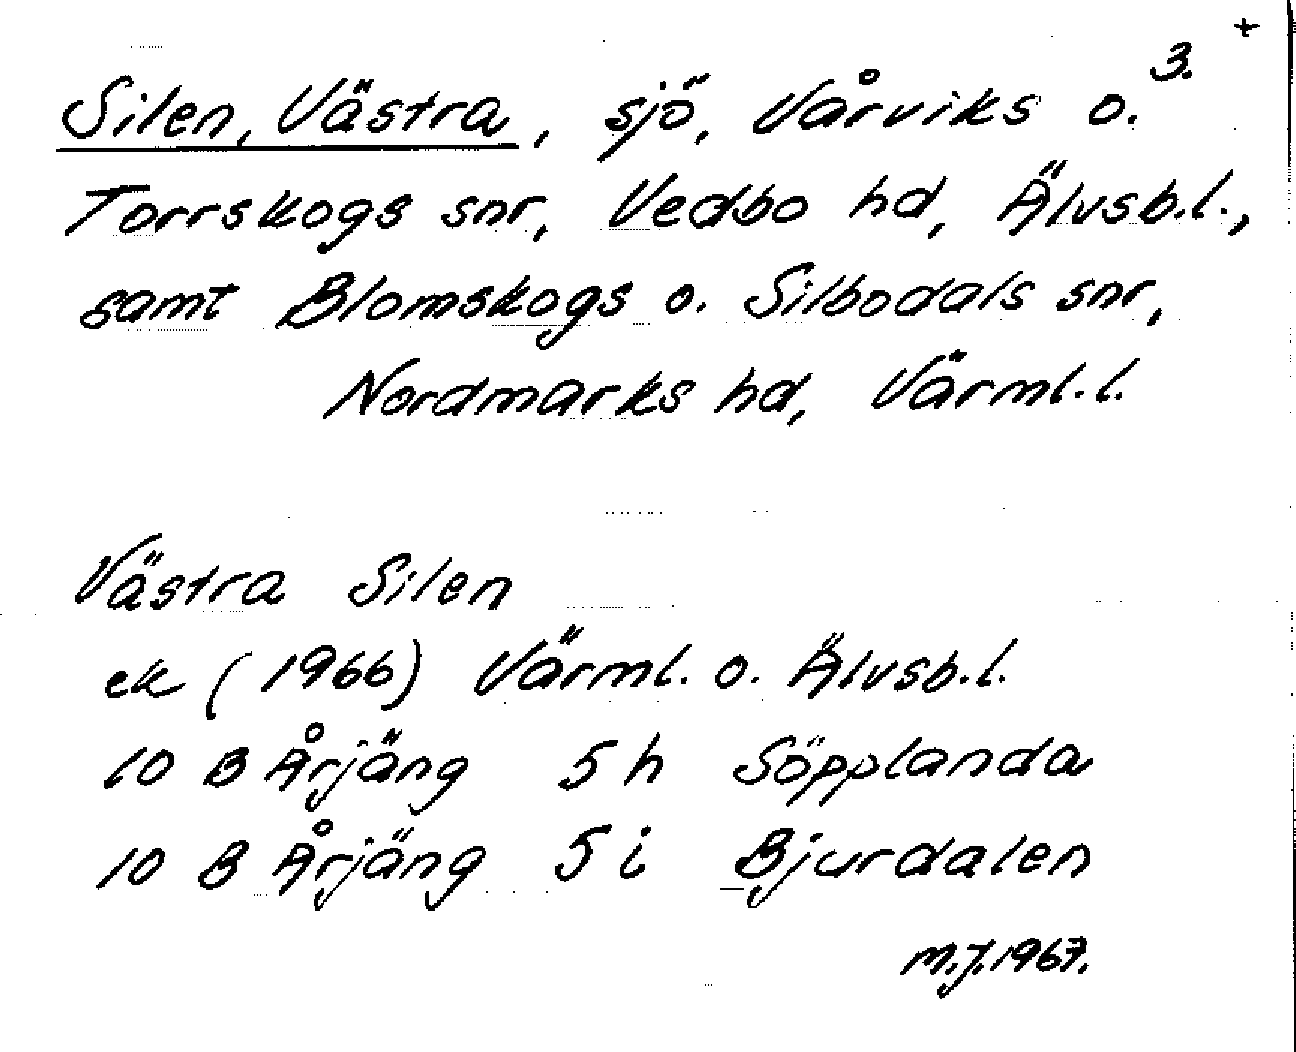 3. +
Silen, Västra, sjö, Vårviks o.
Torrskogs snr, Vedbo hd, Älvsb.l.,
samt Blomskogs o. Silbodals snr,
Nordmarks hd, Värml.l.
Västra Silen
ek (1966) Värml. o. Älvsb.l.
10 B Årjäng 5 h Söpplanda
10 B Årjäng 5 i Bjurdalen
M.J.1967.